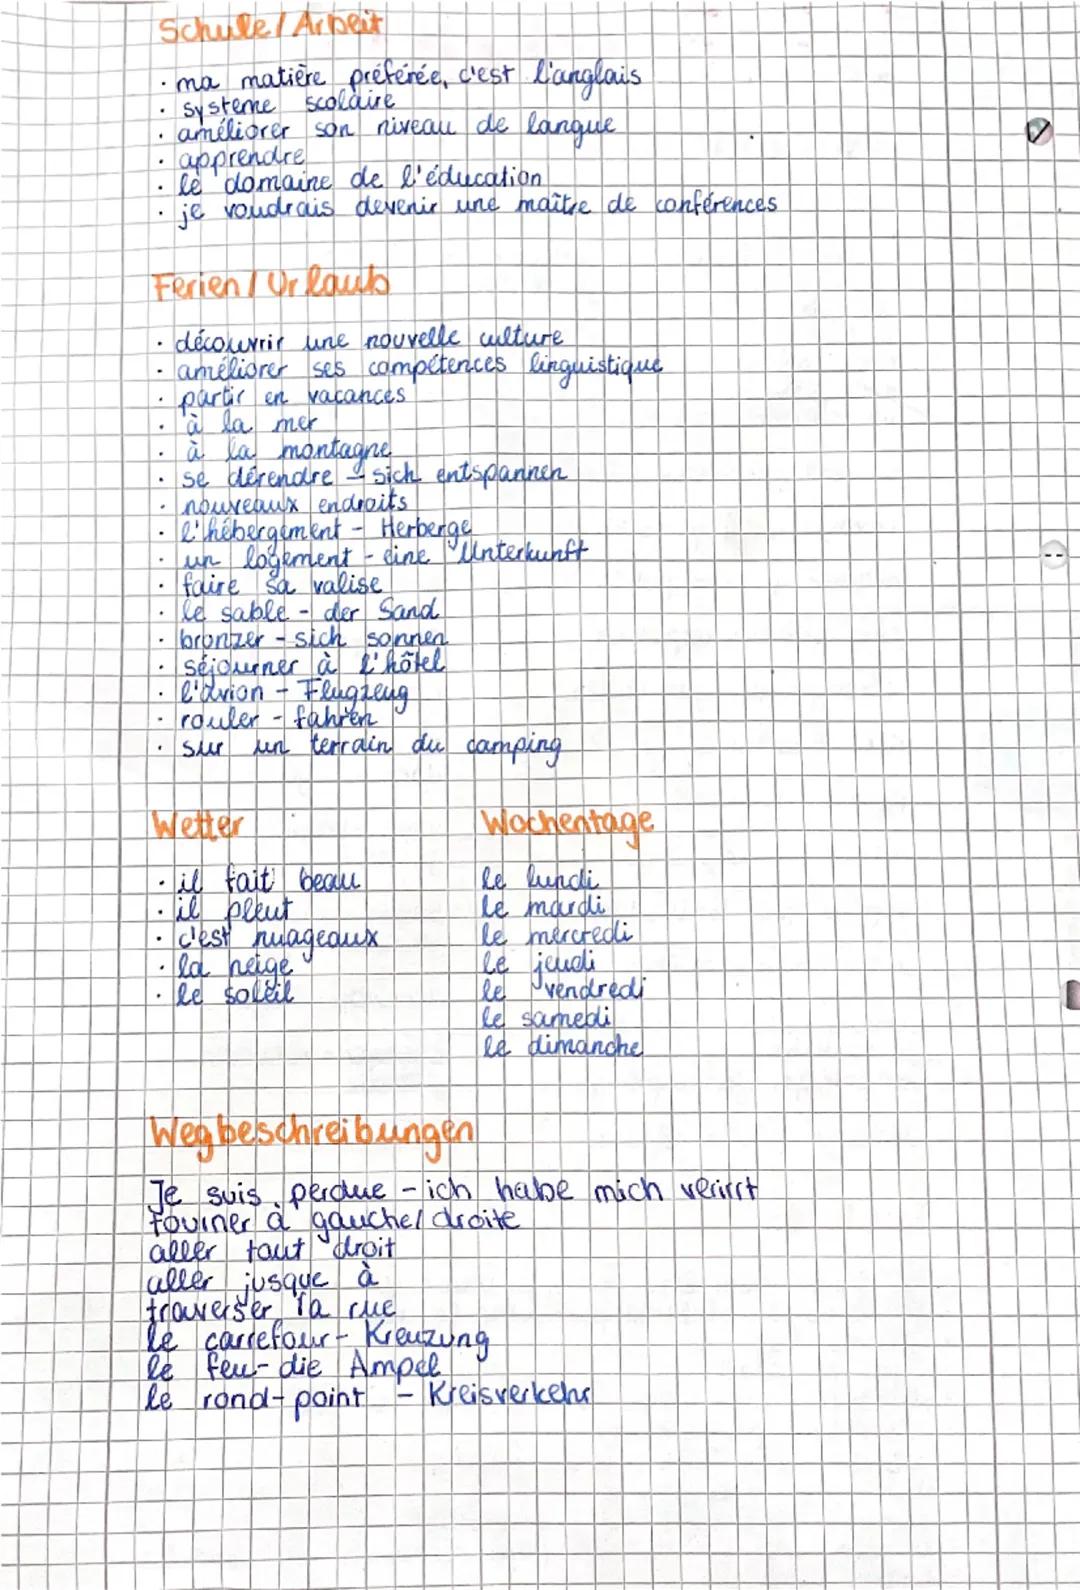 Schule / Arbeit
· ma matière préférée, c'est l'anglais
· systeme scolaire
· améliorer son niveau de langue
· apprendre
· le domaine de l'éducation
· je voudrais devenir une maître de conférences
Ferien / Urlaub
· découvrir une nouvelle culture
· améliorer ses compétences linguistique
· partir en vacances
· à la mer
· à la montagne
· se dérendre - sich entspannen
· nouveaux endroits
· l'hébergement - Herberge
· un logement - eine Unterkunft
· faire sa valise
· le sable - der Sand
· bronzer - sich sonnen
· séjourner à l'hôtel
· l'avion - Flugzeug
· rouler - fahren
· sur un terrain du camping
Wetter
· il fait beau
· il pleut
· c'est nuageaux
· la neige
· le soleil
Wochentage
le lundi
le mardi
le mercredi
le jeudi
le vendredi
le samedi
le dimanche
Wegbeschreibungen
Je suis perdue - ich habe mich verirrt
tourner à gauche/ droite
aller tout droit
aller jusque à
traverser la rue
le carrefour - Kreuzung
le feu - die Ampel
le rond-point - Kreisverkehr